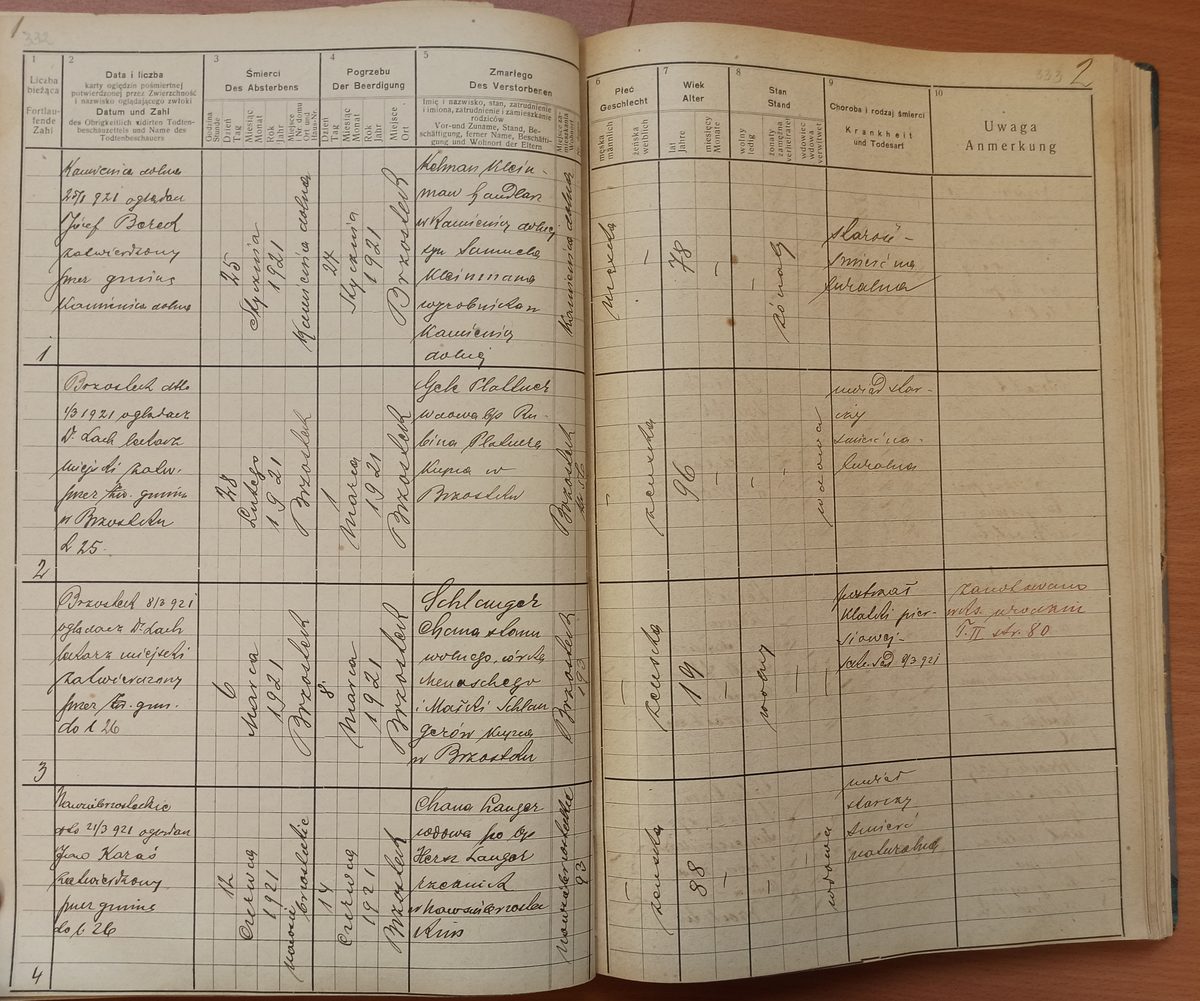 1
332
1
Liczba
bieżąca
Fortlau-
fende
Zahl
2
Data i liczba
karty oględzin pośmiertnej
potwierdzonej przez Zwierzchność
i nazwisko oglądającego zwłoki
Datum und Zahl
des Obrigkeitlich vidirten Todten-
beschauzettels und Name des
Todtenbeschauers
3
Śmierci
Des Absterbens
Godzina
Stunde
Dzień
Tag
Miesiąc
Monat
Rok
Jahr
Miejsce
4
Pogrzebu
Der Beerdigung
Dzień
Tag
Miesiąc
Monat
Rok
Jahr
Miejsce
Ort
5
Zmarłego
Des Verstorbenen
Imię i nazwisko, stan, zatrudnienie
i imiona, zatrudnienie i zamieszkanie
rodziców
Vor-und Zuname, Stand, Be-
schäftigung, ferner Name, Beschäfti-
gung und Wohnort der Eltern
Kamienica dolna
25/1 921 oglądan
Józef Bereck
zatwierdzony
przez gminę
Kamienica dolna
25
Stycznia
1921
Kamienica dolna
27
Stycznia
1921
Brzostek
Kelman Klein-
man handlarz
w Kamienicy dolnej
syn Samuela
Kleinmana
wyrobnika w
Kamienicy
dolnej
Kamienica dolna
1
Brzostek dtto
1/3 1921 oglądacz
Dr Lach lekarz
miejski zatw.
przez gminę
w Brzostku
L 25.
28
Lutego
1921
Brzostek
1
Marca
1921
Brzostek
wdowa lp Ru-
bina Platnera
kupca w
Brzostku
Brzostek
2
Brzostek 8/3 921
oglądacz Dr Lach
lekarz miejski
zatwierdzony
przez gmin.
do l 26
6
Marca
1921
Brzostek
8
Marca
1921
Brzostek
Schlanger
Chana stanu
wolnego, córka
Menaschego
i Małki Schlan
gerów kupca
w Brzostku
Brzostek
193
3
Nawsiebrzosteckie
dto 21/3 921 oglądan
Jan Karaś
zatwierdzony
przez gminę
do l 26
12
Czerwca
1921
14
Czerwca
1921
Brzostek
Chana Langer
wdowa po lp
Hersz Langer
rzeźnik
Nawsiebrzosteckie
93
4
333
2
6
Płeć
Geschlecht
męska
männlich
żeńska
weiblich
7
Wiek
Alter
lat
Jahre
miesięcy
Monate
8
Stan
Stand
wolny
ledig
żonaty
zamężna
verheiratet
wdowiec
wdowa
verwitwet
9
Choroba i rodzaj śmierci
Krankheit
und Todesart
10
Uwaga
Anmerkung
męzka
–
78
–
–
żónaty
starość –
śmierć na
turalna
–
96
–
–
wdowa
uwiąd star-
czy
śmierć na-
turalna
–
żeńska
19
–
wolny
–
–
postrzał
klatki pier-
siowej-
zanotowano
w ks. urodzin
T. II str. 80
–
żeńska
88
–
–
wdowa
uwiąd
starczy
śmierć
naturalna